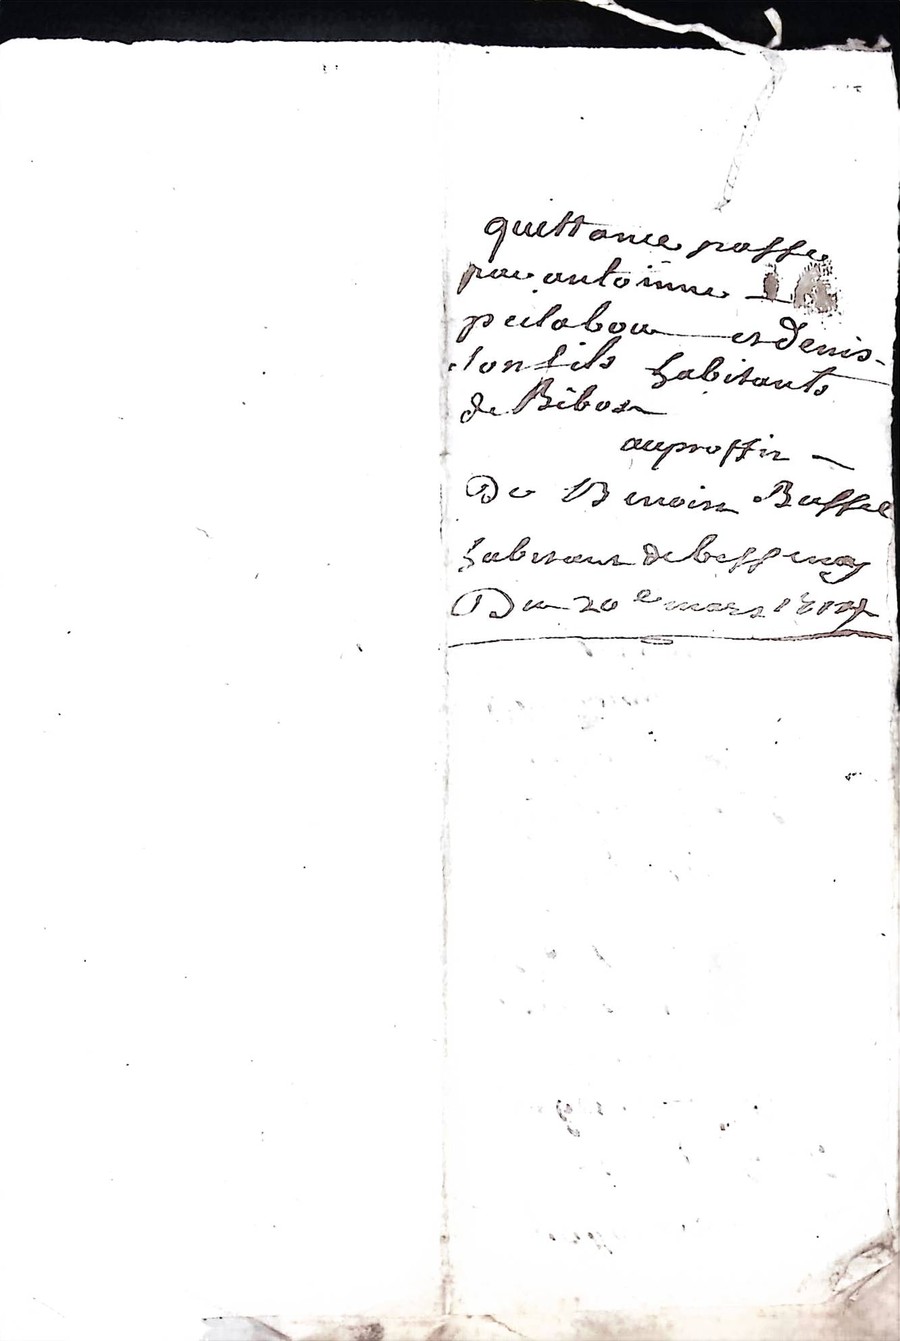 quittance passe
par antoinne
peilabou et denis
son fils habitants
de Bibos
au proffit
De Benoist Buffe
habitant de bessenay
Du 20 e mars